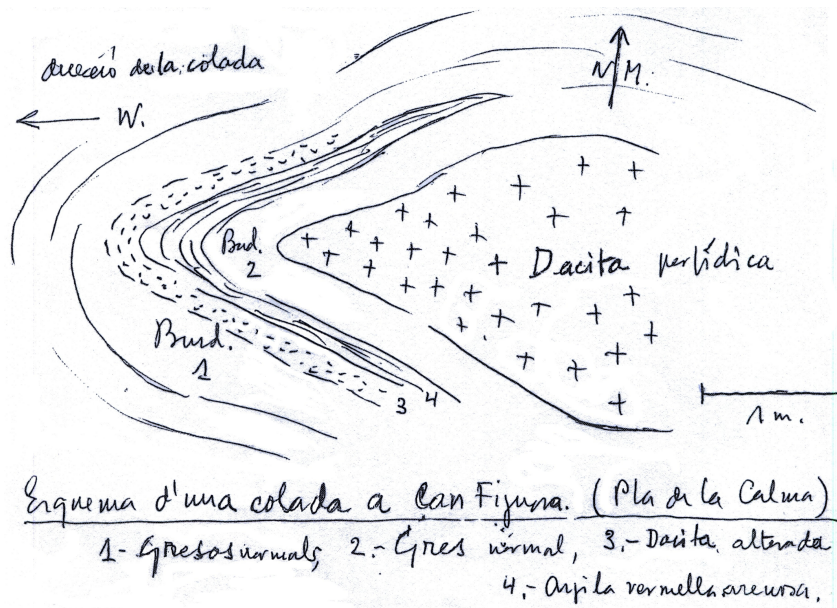 direcció de la colada
N M.
W.
Bud.
2
Dacita porfídica
Bund.
1
3 4
1 m.
Esquema d'una colada a Can Figuera. (Pla de la Calma)
1- Gresos normals, 2.- Gres normal, 3.- Dacita alterada
4.- Argila vermella arenosa.